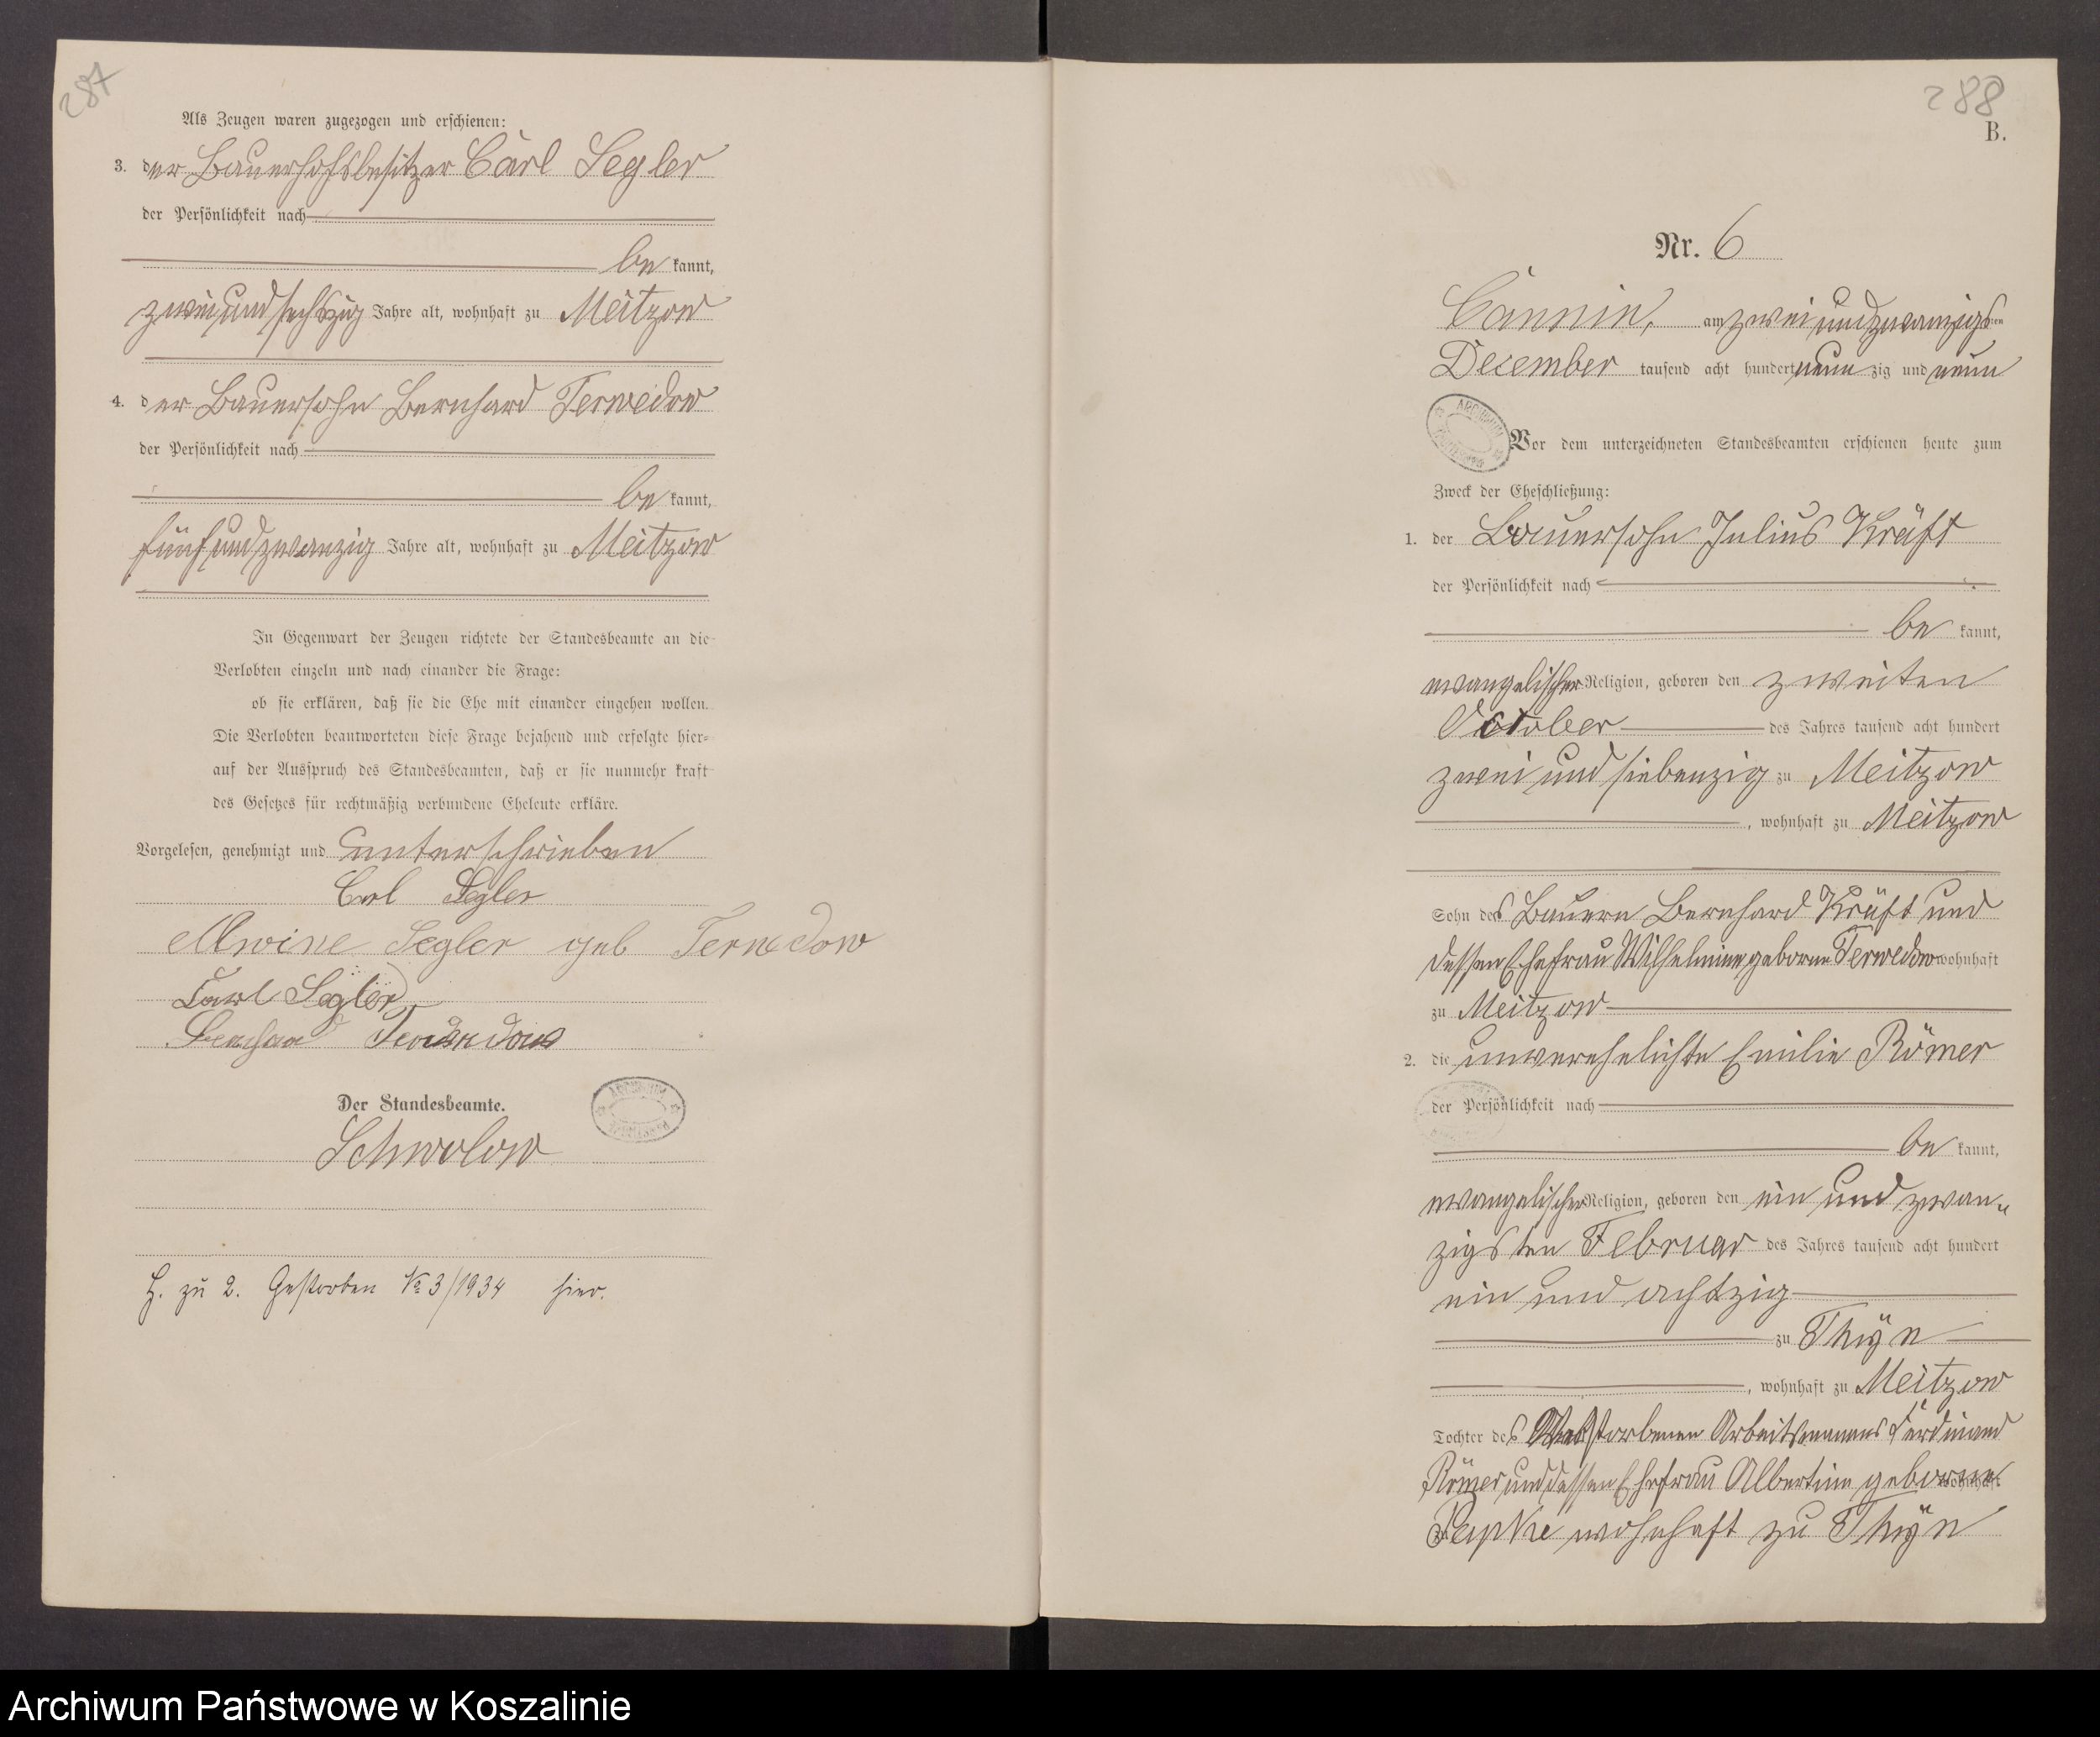 287
Als Zeugen waren zugezogen und erschienen:
3. der Bauerhofsbesitzer Carl Segler
der Persönlichkeit nach
be kannt,
zweiundsechszig Jahre alt, wohnhaft zu Meitzow
4. der Bauersohn Bernhard Terwedow
der Persönlichkeit nach
be kannt,
fünfundzwanzig Jahre alt, wohnhaft zu Meitzow
In Gegenwart der Zeugen richtete der Standesbeamte an die
Verlobten einzeln und nach einander die Frage:
ob sie erklären, daß sie die Ehe mit einander eingehen wollen.
Die Verlobten beantworteten diese Frage bejahend und erfolgte hier-
auf der Ausspruch des Standesbeamten, daß er sie nunmehr kraft
des Gesetzes für rechtmäßig verbundene Eheleute erkläre.
Vorgelesen, genehmigt und unterschrieben
Carl Segler
Alwine Segler geb Terwedow
Carl Segler
Bernhard Terwedow
Der Standesbeamte.
Schwolow
H. zu 2. Gestorben No 3/1934 hier.
288
B.
Nr. 6
Cannin, am zweiundzwanzigsten
December tausend acht hundert neunzig und neun
ARCHIWUM
Vor dem unterzeichneten Standesbeamten erschienen heute zum
Zweck der Eheschließung:
1. der Bauersohn Julius Kräft
der Persönlichkeit nach
be kannt,
evangelischer Religion, geboren den zweiten
October des Jahres tausend acht hundert
zwei und siebenzig zu Meitzow
, wohnhaft zu Meitzow
Sohn des Bauern Bernhard Kräft und
dessen Ehefrau Wilhelmine geborne Terwedow wohnhaft
zu Meitzow
2. die unverehelichte Emilie Römer
der Persönlichkeit nach
be kannt,
evangelischer Religion, geboren den ein und zwan-
zigsten Februar des Jahres tausend acht hundert
ein und achtzig
zu Thÿn
, wohnhaft zu Meitzow
Tochter des Verstorbenen Arbeitsmanns Ferdinand
Römer und dessen Ehefrau Albertine geborne wohnhaft
Papke wohnhaft zu Thÿn
Archiwum Państwowe w Koszalinie